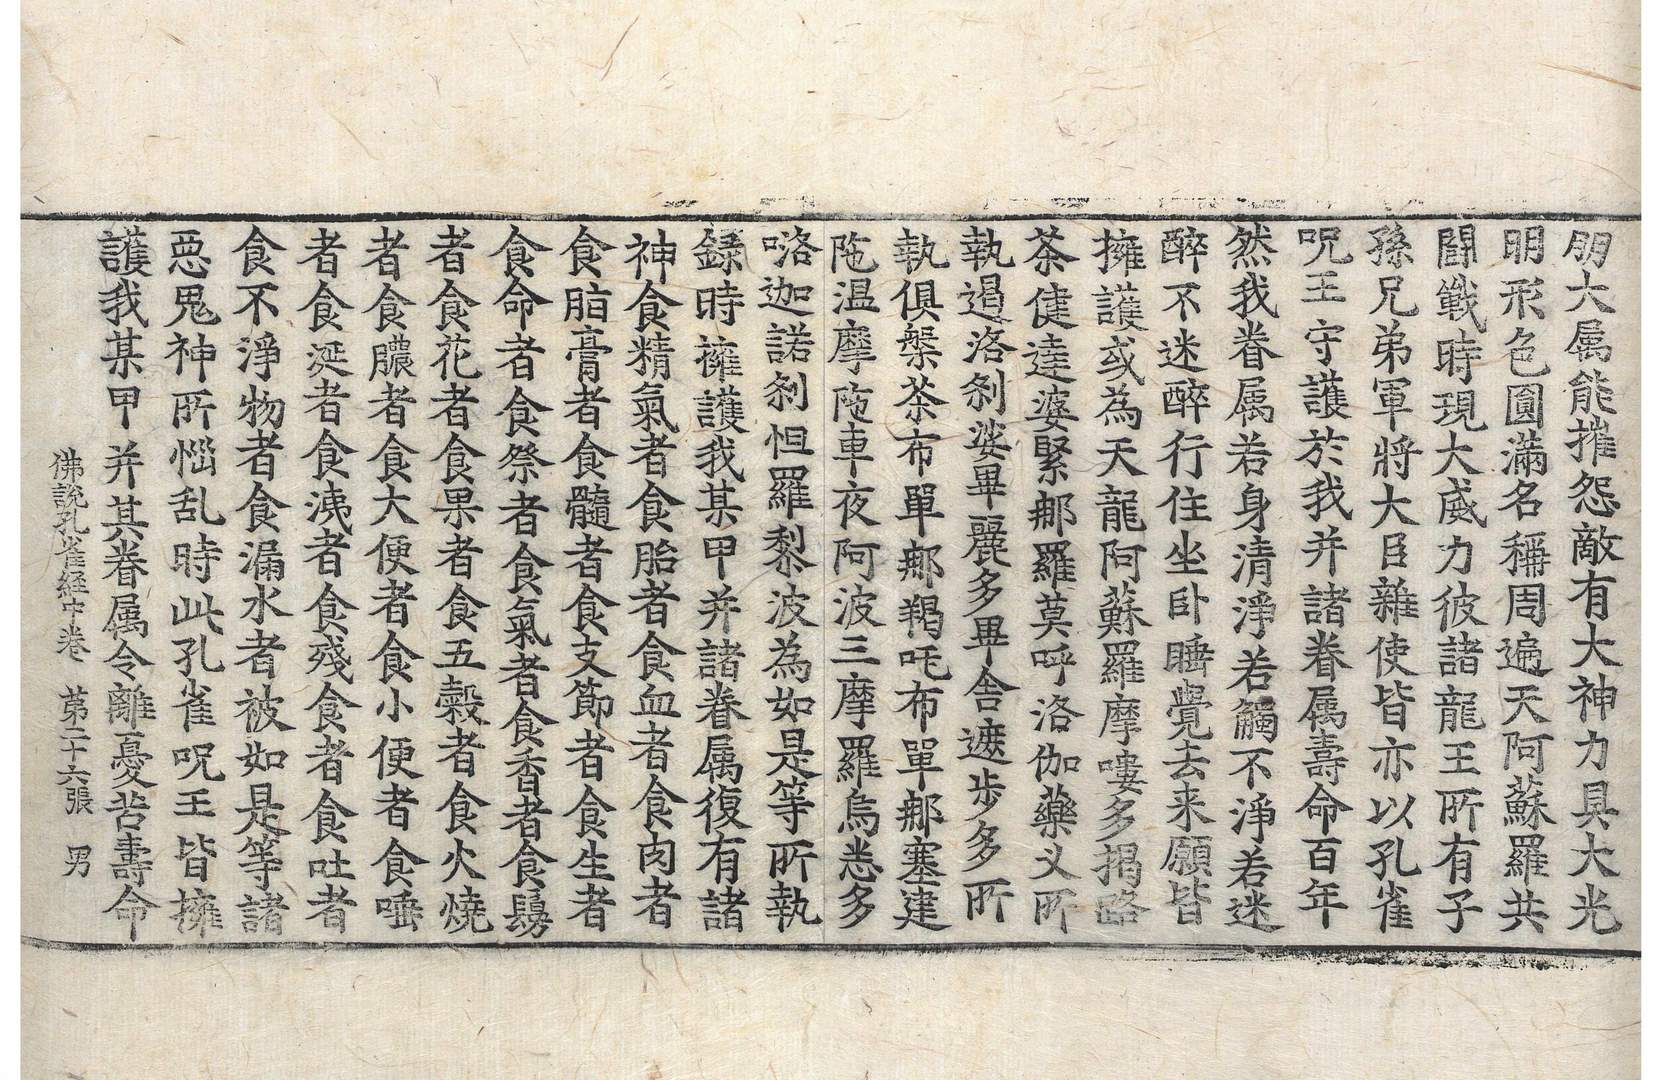 朋大属能摧怨敵有大神力具大光
明形色圓滿名稱周遍天阿蘇羅共
鬪戰時現大威力彼諸龍王所有子
孫兄弟軍將大臣雜使皆亦以孔雀
呪王守護於我并諸眷属壽命百年
然我眷属若身清淨若觸不淨若迷
醉不迷醉行住坐卧睡覺去来願皆
擁護或為天龍阿蘇羅摩嘍多揭路
茶健達婆緊那羅莫呼洛伽藥叉所
執遏洛刹娑畢麗多畢舍遮步多所
執俱槃茶布單那羯吒布單那塞建
陁温摩陁車夜阿波三摩羅烏悉多
咯迦諾剎怛羅黎波為如是等所執
録時擁護我某甲并諸眷属復有諸
神食精氣者食胎者食血者食肉者
食脂膏者食髓者食支節者食生者
食命者食祭者食氣者食香者食鬘
者食花者食果者食五穀者食火燒
者食膿者食大便者食小便者食唾
者食涎者食洟者食殘食者食吐者
食不淨物者食漏水者被如是等諸
惡鬼神所惱乱時此孔雀呪王皆擁
護我某甲并其眷属令離憂苦壽命
佛說孔雀経中卷 苐二十六張 男